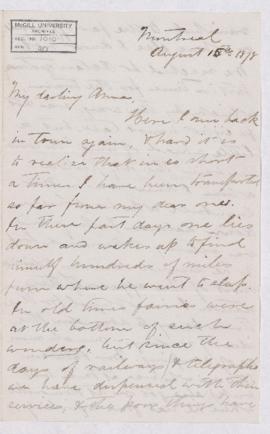 McGILL UNIVERSITY
ARCHIVES
ACC. NO. 1010
REF.
Montreal
August 15th 1878
My darling Anna
Here I am back
in town again, & hard it is
to realize that in so short
a time I have been transported
so far from my dear ones.
In these fast days one lies
down and wakes up to find
himself hundreds of miles
from where he went to sleep.
In old times fairies were
at the bottom of such
wonders, but since the
days of railways & telegraphs
we have dispensed with their
services, & the poor things have